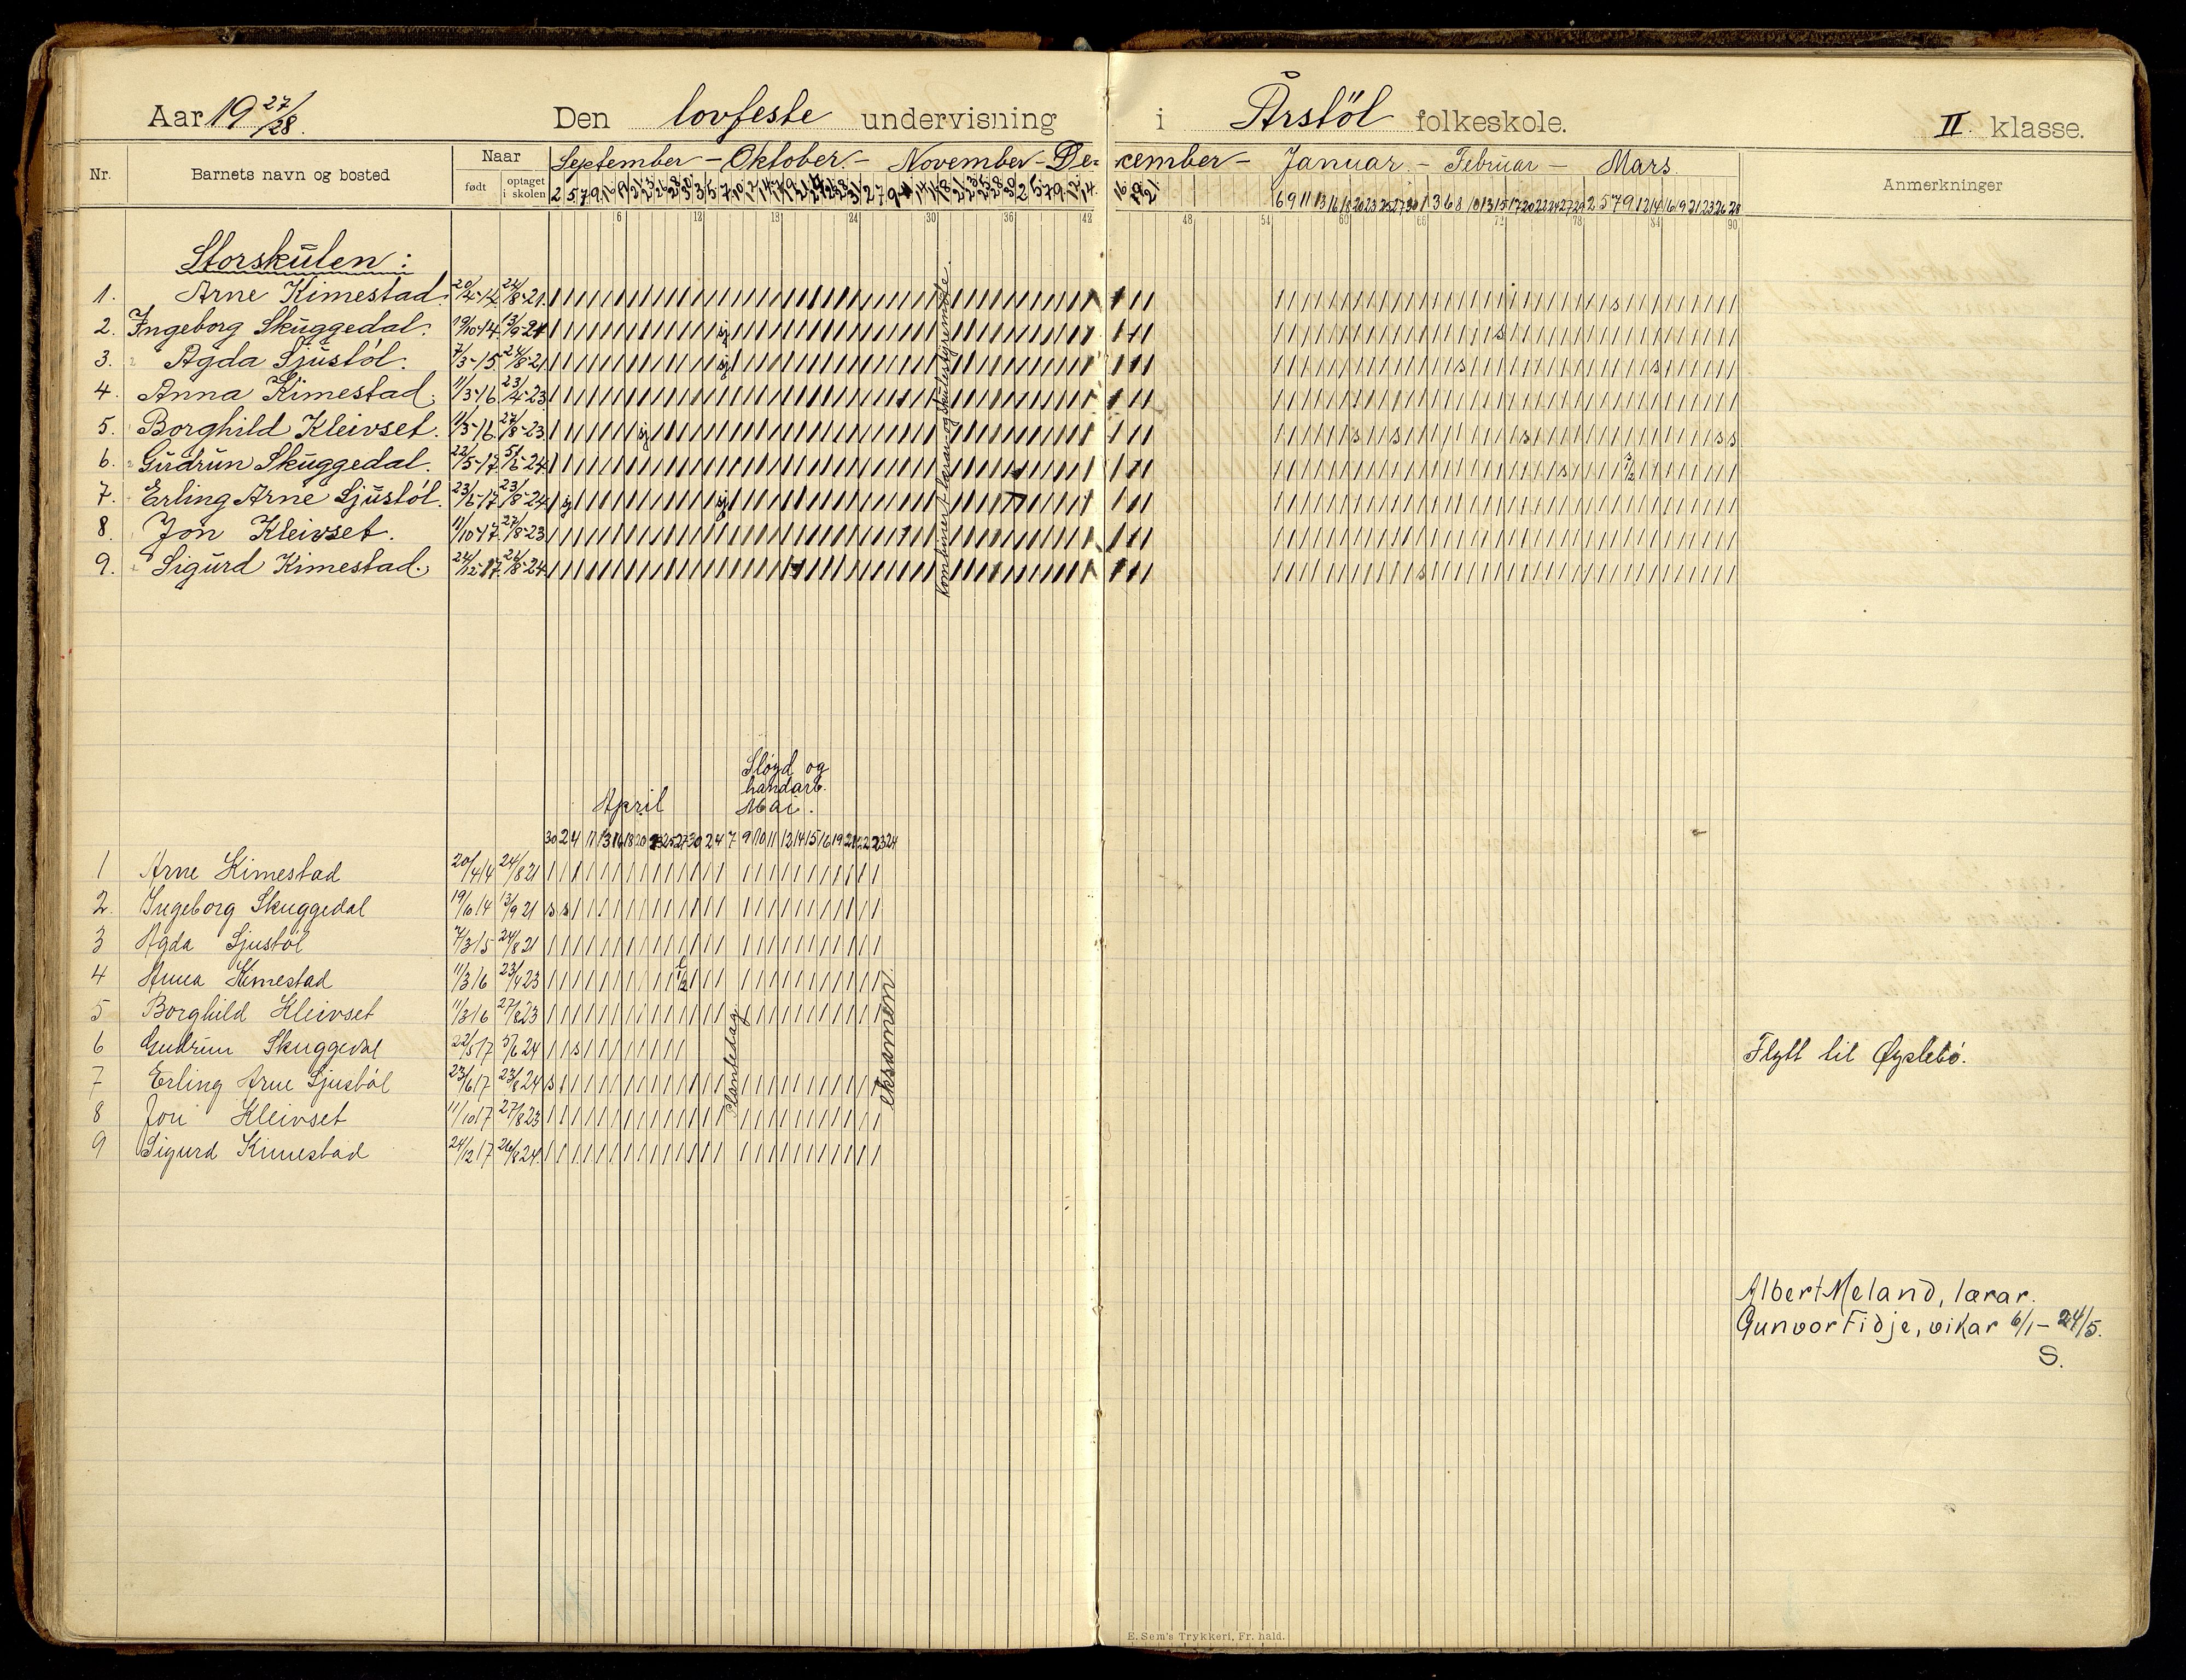 Aar 19 27/28. Den lovfeste undervisning i Årstöl folkeskole. II klasse.
Nr. Barnets navn og bosted Naar født optaget i skolen September - Oktober - November - De- cember - Januar - Februar - Mars. Anmerkninger
6 9 11 13 16 18 20 23 25 27 30 1 3 6 8 10 13 15 17 20 22 24 27 29 2 5 7 9 12 14 16 19 21 23 26 28
6 12 18 24 30 36 42 48 54 60 66 72 78 84 90
Storskulen:
1. Arne Kimestad. 20/4-14 24/8-21.
2. Ingeborg Skuggedal. 19/10-14. 13/9-21
3. Agda Ljustöl. 7/3-15 24/8-21.
4. Anna Kimestad. 11/3-16 23/4-23.
5. Borghild Kleivset. 11/3-16 27/8-23.
6. Gudrun Skuggedal. 22/5-17. 5/6-24.
7. Erling Arne Ljustöl. 23/6-17. 23/8-24.
8. Jon Kleivset. 11/10-17. 27/8-23
9. Sigurd Kimestad. 24/12-17. 26/8-24.
Kombinert lærar- og skulestyremöte.
Sløyd og
handarb.
April Mai.
30 2 4 11 13 16 18 20 23 25 27 30 2 4 7 9 10 11 12 14 15 16 19 21 22 23 24
1 Arne Kimestad 20/4 14 24/8 21
2. Ingeborg Skuggedal 19/6 14 13/9 21
3 Agda Ljustöl 7/3 15 24/8 21
4 Anna Kimestad 11/3 16 23/4 23
5 Borghild Kleivset 11/3 16 27/8 23
6 Gudrun Skuggedal 22/5 17 5/6 24 Flytt til Øyslebö.
7 Erling Arne Ljustöl 23/6 17 23/8 24
8 Jon Kleivset 11/10 17 27/8 23
9 Sigurd Kimestad 24/12 17 26/8 24
Plantedag
eksamen.
Albert Meland, lærar.
Gunvor Fidje, vikar 6/1 - 24/5.
S.
E. Sem's Trykkeri, Fr. hald.